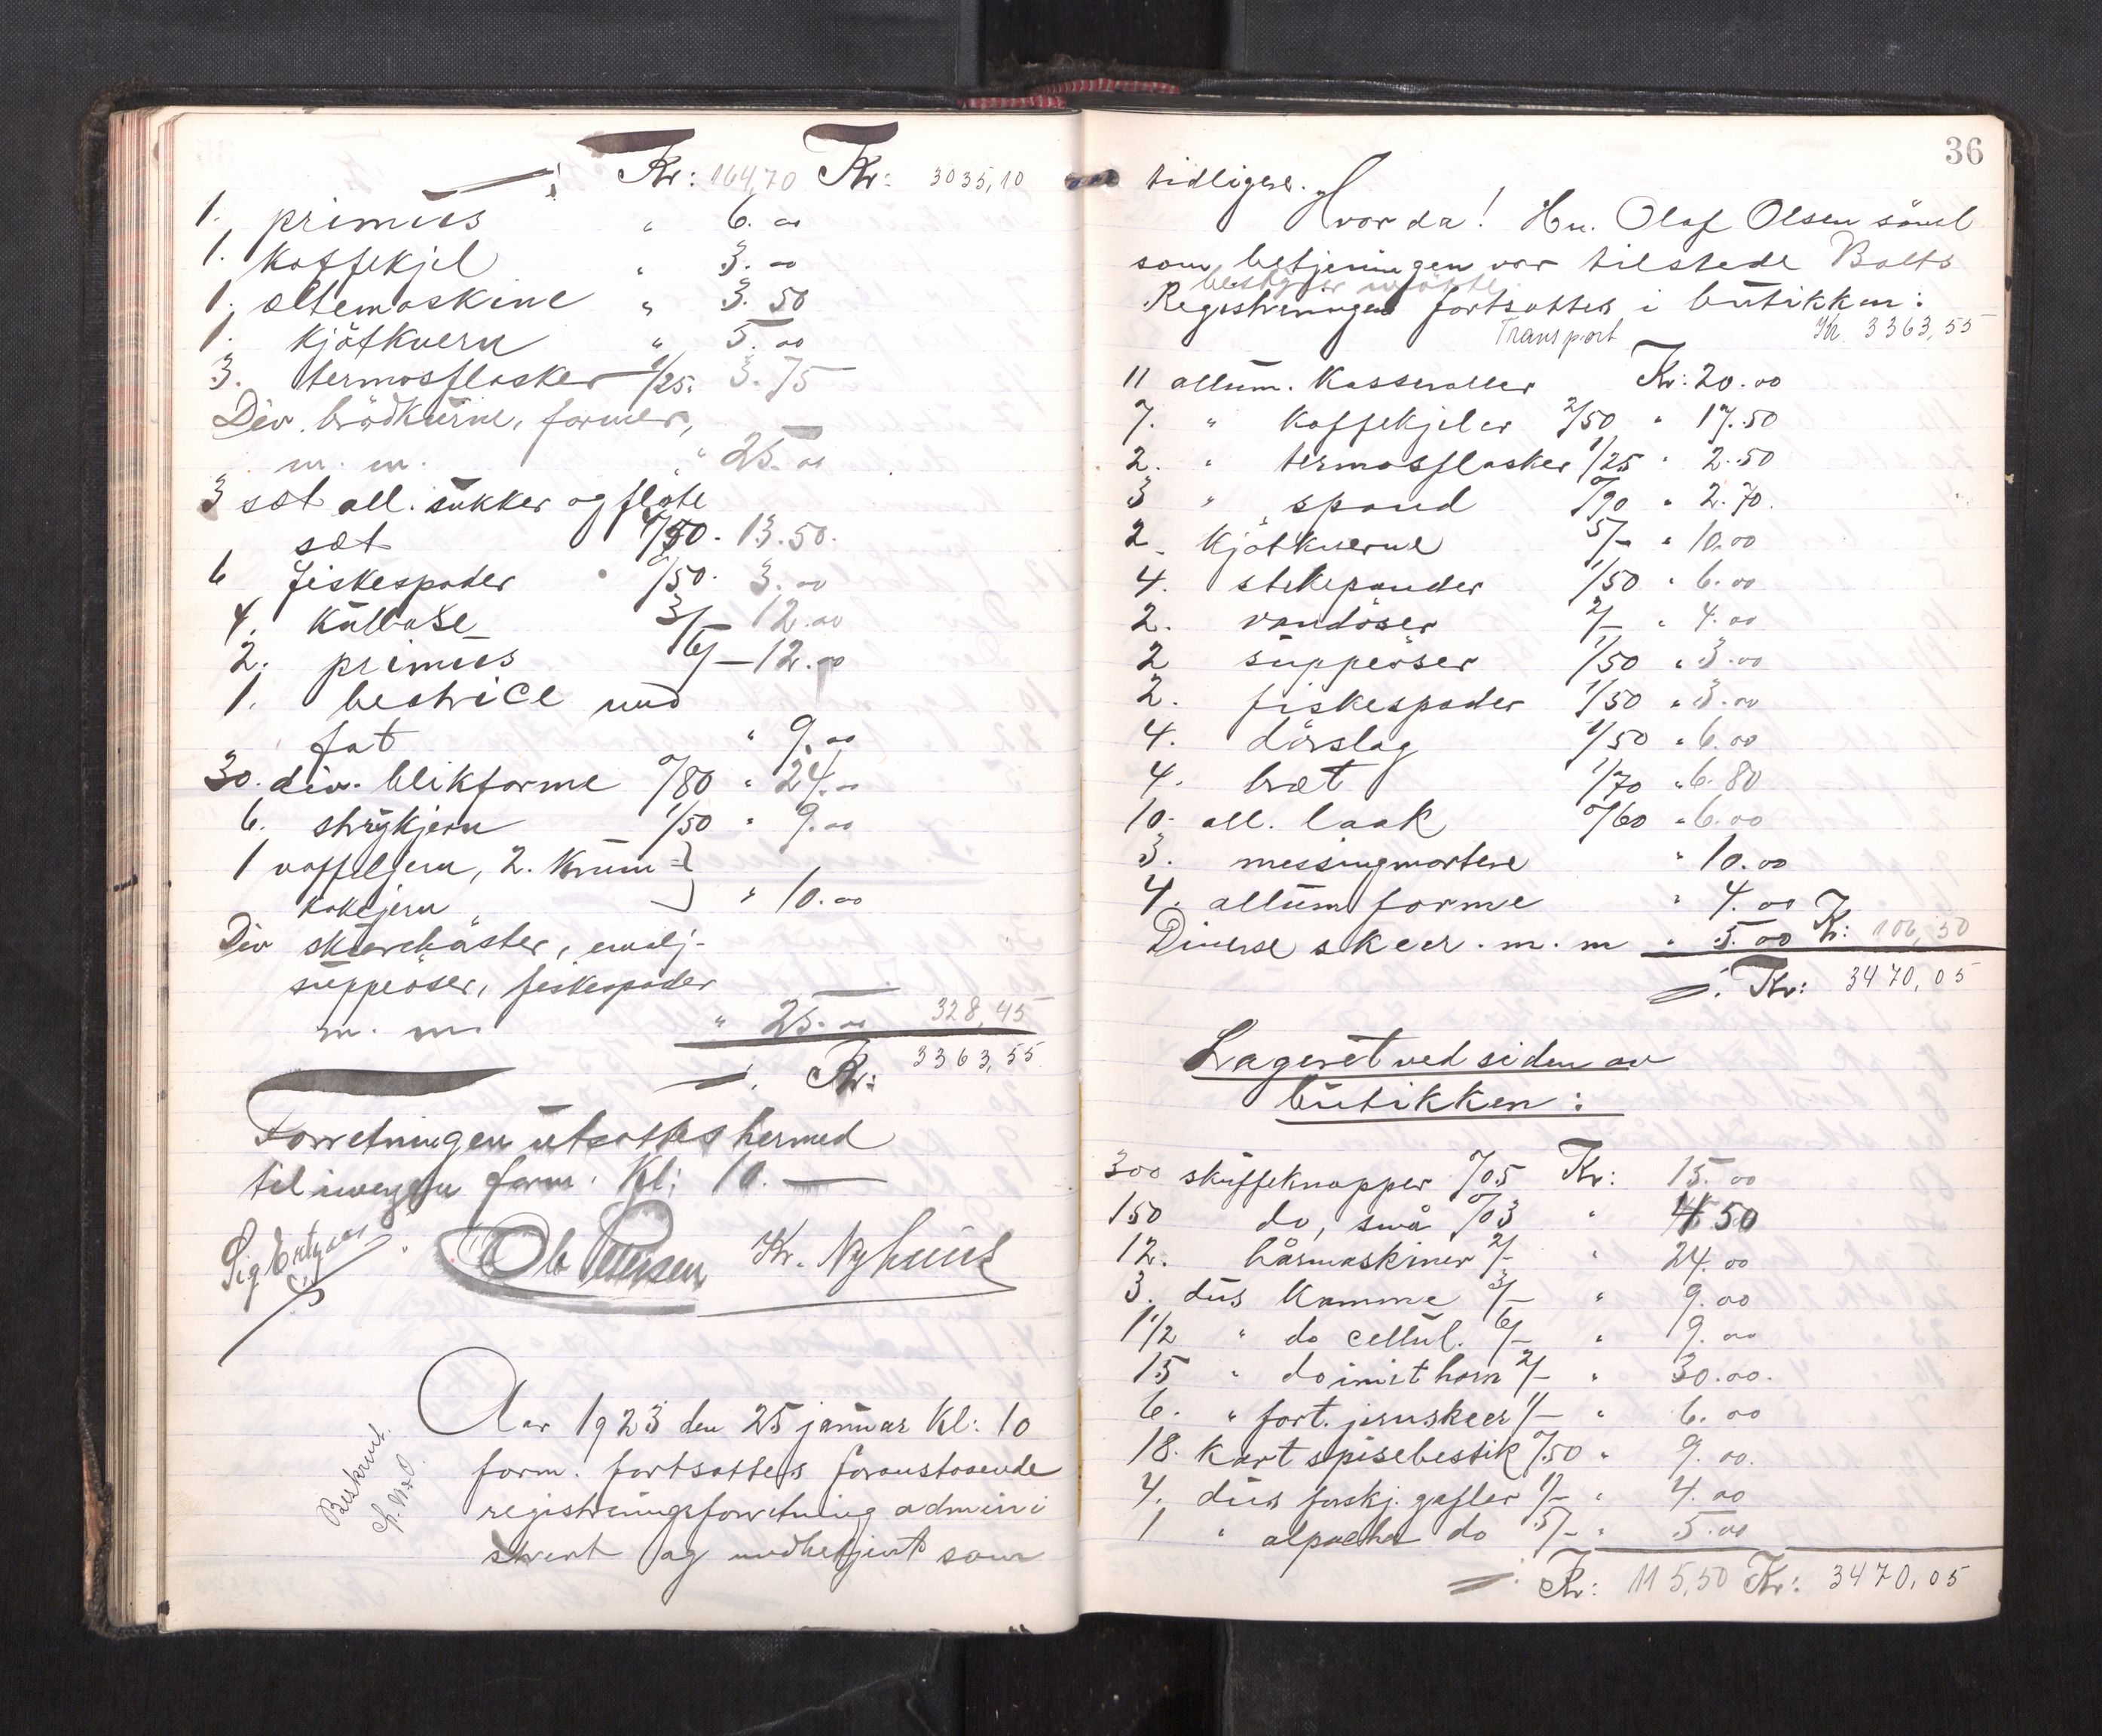 Kr: 164,70 Kr: 3035,10
1. primus " 6.00
1. kaffekjel " 3.00
1. æltemaskine " 3.50
1. kjötkvern " 5.00
3. termosflasker 1/25. 3.75
Div. brödkurve, former,
m. m. " 25.00
3 sæt all. sukker og flöte
sæt 4/50. 13.50.
6 fiskespader 0/50. 3.00
4. kulbokse 3/- 12.00
2. primus 6/- 12.00
1. beatrice med
fat " 9.00
30. div. blikforme 0/80 " 24.00
6. strykjern 1/50 " 9.00
1 vaffeljern, 2. krum=
kakejern " 10.00
Div skurebøster, emalj-
suppeöser, fiskespader
m. m. " 25.00 328,45
Kr: 3363,55
Forretningen utsattes hermed
til imorgen form. Kl: 10.
Kr. Nyhuus
Aar 1923 den 25 januar Kl: 10
form. fortsattes foranstaaende
registreringsforretning admini
strert og medbetjent som
Beskrevet.
36
tidligere.
Hvor da! Hr. Olaf Olsen samt
som betjeningen var tilstede Boets
bestyrer mötte
Registreringen fortsattes i butikken:
Transport Kr 3363,55
11 allum. Kasseroller Kr: 20.00
7. " kaffekjeler 2/50 " 17.50
2. " termosflasker 1/25 " 2.50
3 " spand 0/90 " 2.70.
2. kjötkverne 5/- " 10.00
4. stekepander 1/50 " 6.00
2. vandöser 2/- " 4.00
2 suppeöser 1/50 " 3.00
2. fiskespader 1/50 " 3.00
4. dörslag 1/50 " 6.00
4. bræt 1/70 " 6.80
10. all. laak 0/60 " 6.00
3. messingmortere " 10.00
4. allum forme " 4.00
Diverse skeer. m. m " 5.00 Kr: 106,50
Kr: 3470,05
Lageret ved siden av
butikken:
300 skuffeknapper 0/05 Kr: 15.00
150 do, små 0/03 " 4 50
12. hårmaskiner 2/- " 24.00
3. dus Kamme 3/- " 9.00
1 1/2 " do cellul. 6/- " 9.00
15 " do imit horn 2/- " 30.00.
6. " fort. jernskeer 1/- " 6.00
18. Kart spisebestik 0/50 " 9.00.
4. dus forskj. gafler 1/- " 4.00
1 " alpacka do 5/- " 5.00
Kr: 115,50 Kr: 3470,05